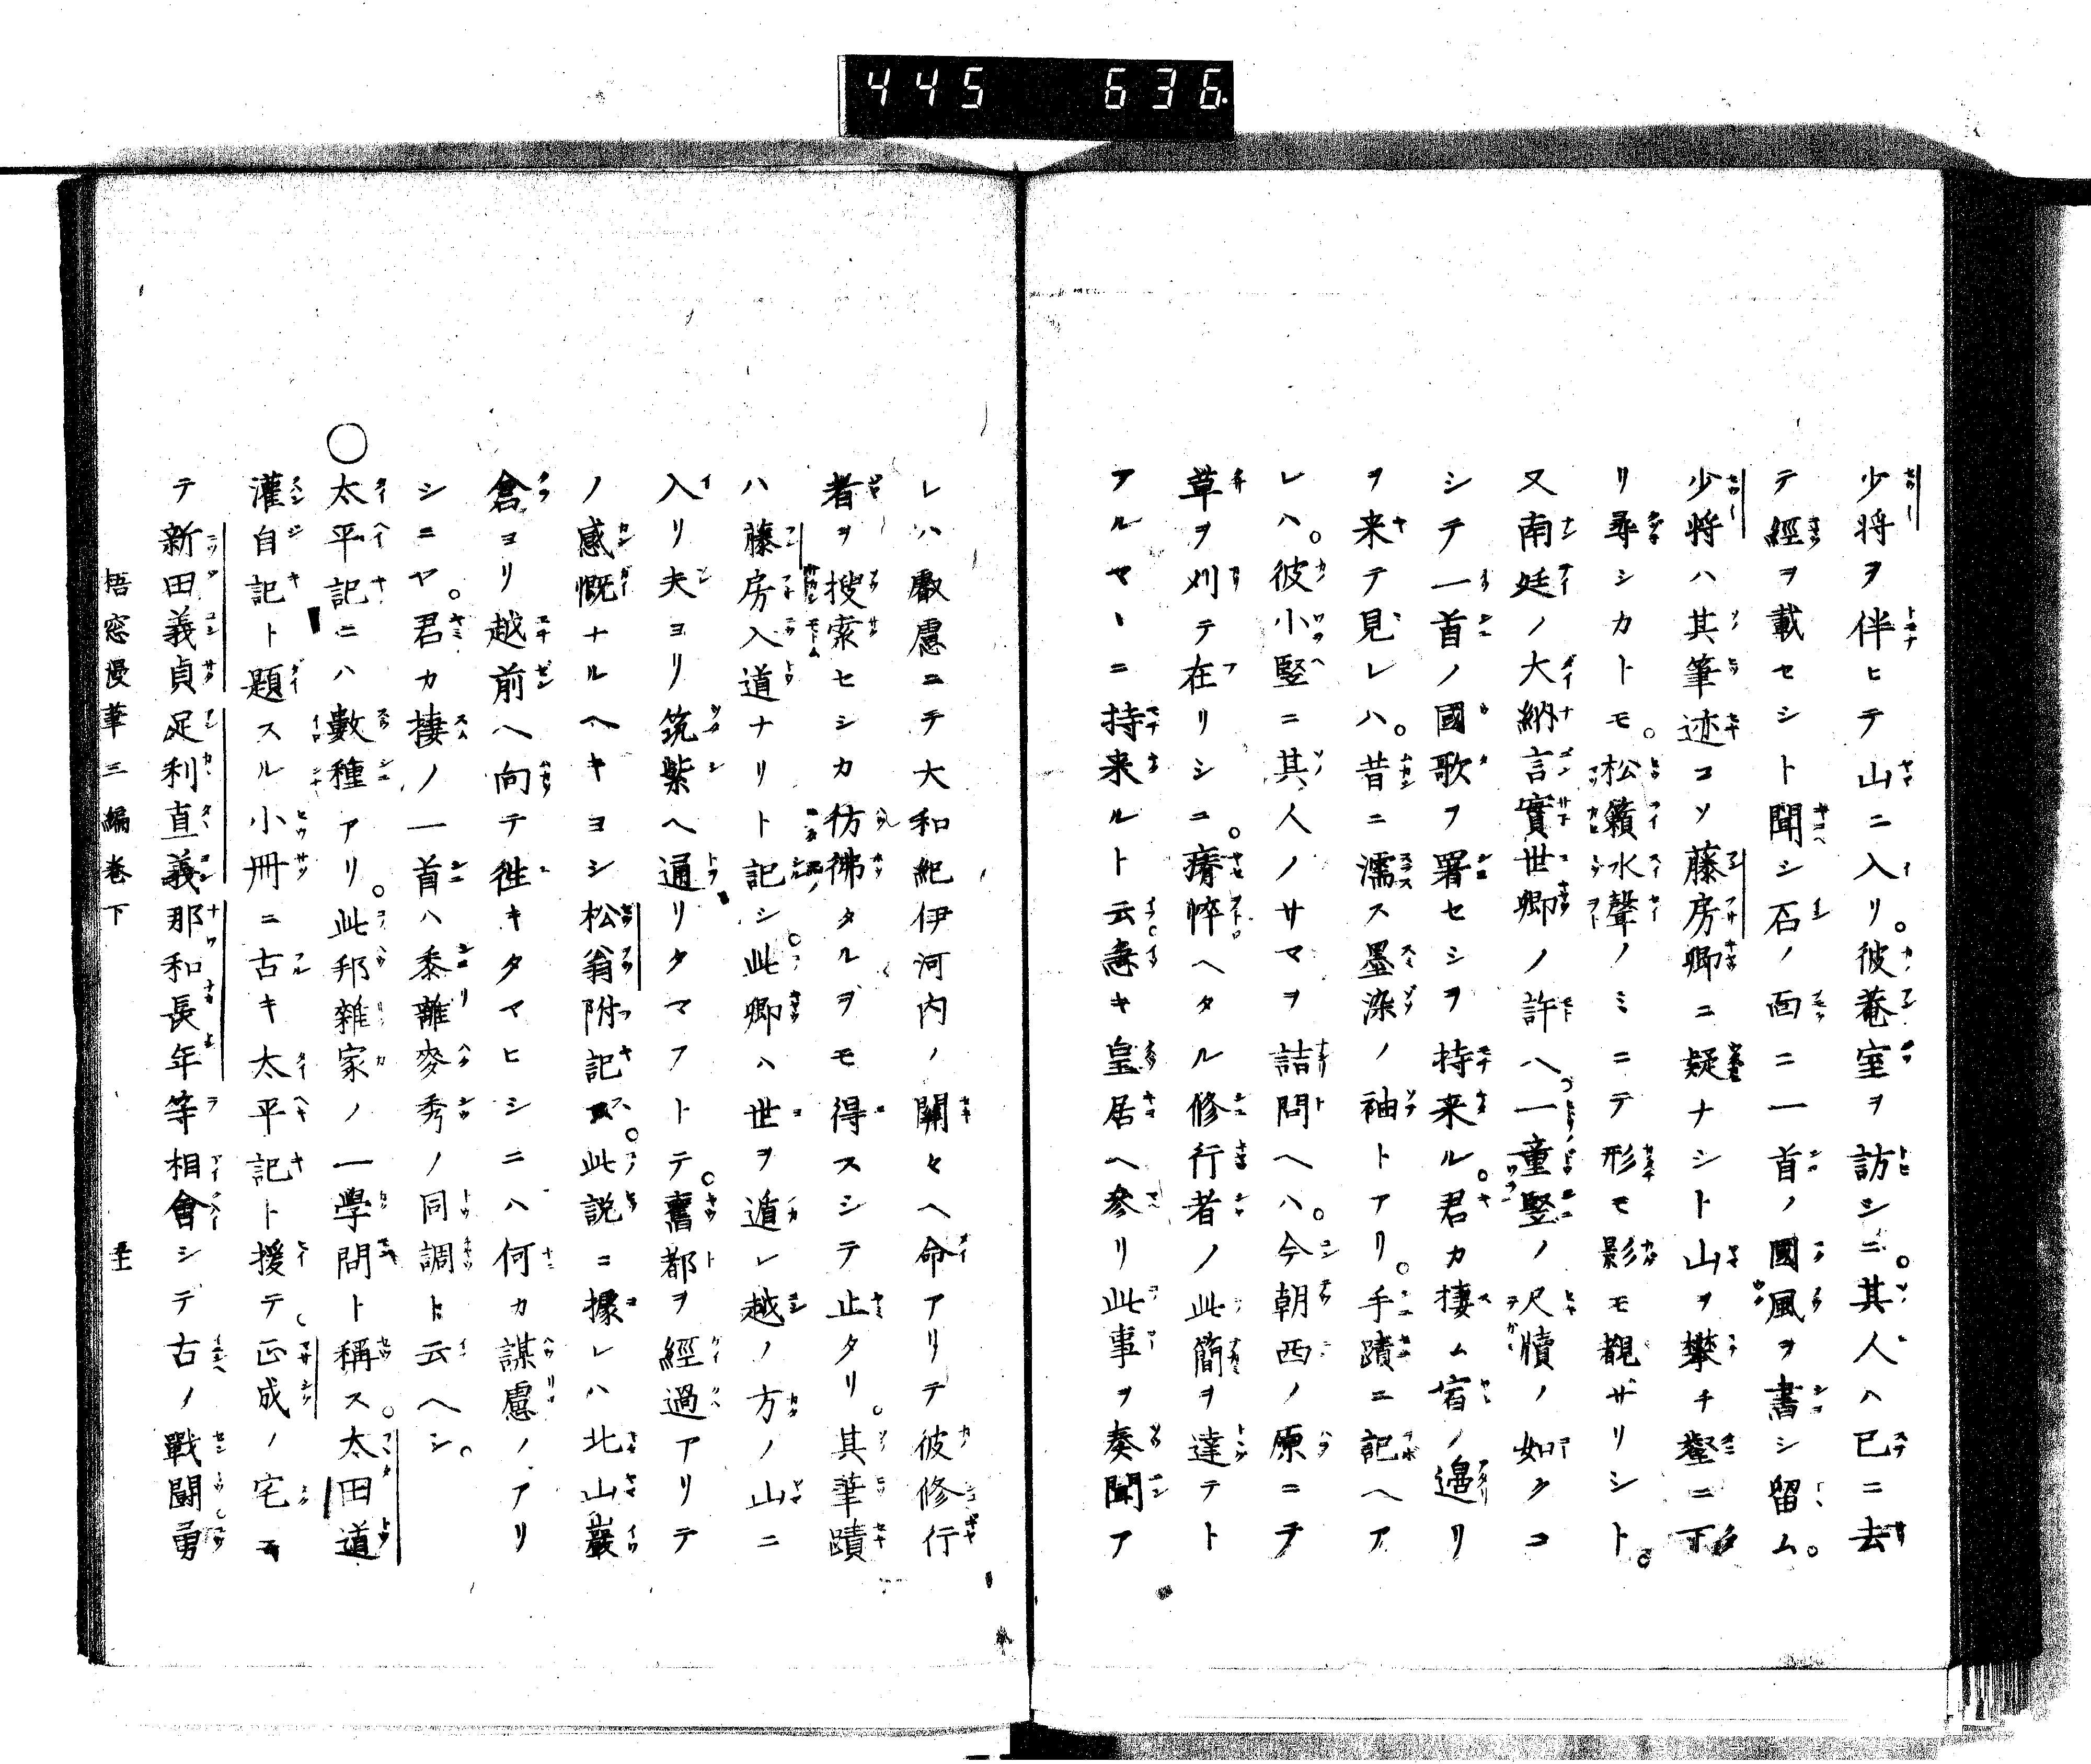 445 636
少将ヲ伴ヒテ山ニ入リ。彼菴室ヲ訪シニ。其人ハ已ニ去
テ經ヲ載セシト聞シ石ノ面ニ一首ノ國風ヲ書シ留ム。
少将ハ其筆迹コソ藤房卿ニ疑ナシト山ヲ攀チ壑ニ下
リ尋シカトモ。松籟水聲ノミニテ形モ影モ覩ザリシト。
又南廷ノ大納言實世卿ノ許ヘ一童竪ノ尺牘ノ如クコ
シテ一首ノ國歌ヲ署セシヲ持来ル。君カ棲ム宿ノ邉リ
ヲ来テ見レハ。昔ニ濡ス墨染ノ袖トアリ。手蹟ニ記ヘア
レハ。彼小竪ニ其人ノサマヲ詰問ヘハ。今朝西ノ原ニテ
草ヲ刈テ在リシニ。瘠悴ヘタル修行者ノ此簡ヲ達テト
アルマヽニ持来ルト云。急キ皇居ヘ參リ此事ヲ奏聞ア
レハ叡慮ニテ大和紀伊河内ノ關々ヘ命アリテ彼修行
者ヲ搜索セシカ彷彿タルヲモ得スシテ止タリ。其筆蹟
ハ藤房入道ナリト記シ。此卿ハ世ヲ遁レ越ノ方ノ山ニ
入リ夫ヨリ筑紫ヘ通リタマフトテ。舊都ヲ經過アリテ
ノ感慨ナルヘキヨシ松翁附記ス。此説ニ據レハ北山巖
倉ヨリ越前ヘ向テ徃キタマヒシニハ何カ謀慮ノアリ
シニヤ。君カ棲ノ一首ハ黍離麥秀ノ同調ト云ヘシ。
○太平記ニハ數種アリ。此邦雜家ノ一學問ト稱ス。太田道
灌自記ト題スル小冊ニ古キ太平記ト援テ。正成ノ宅ニ
テ新田義貞足利直義那和長年等相會シテ古ノ戰鬪勇
梧窓漫筆三編巻下